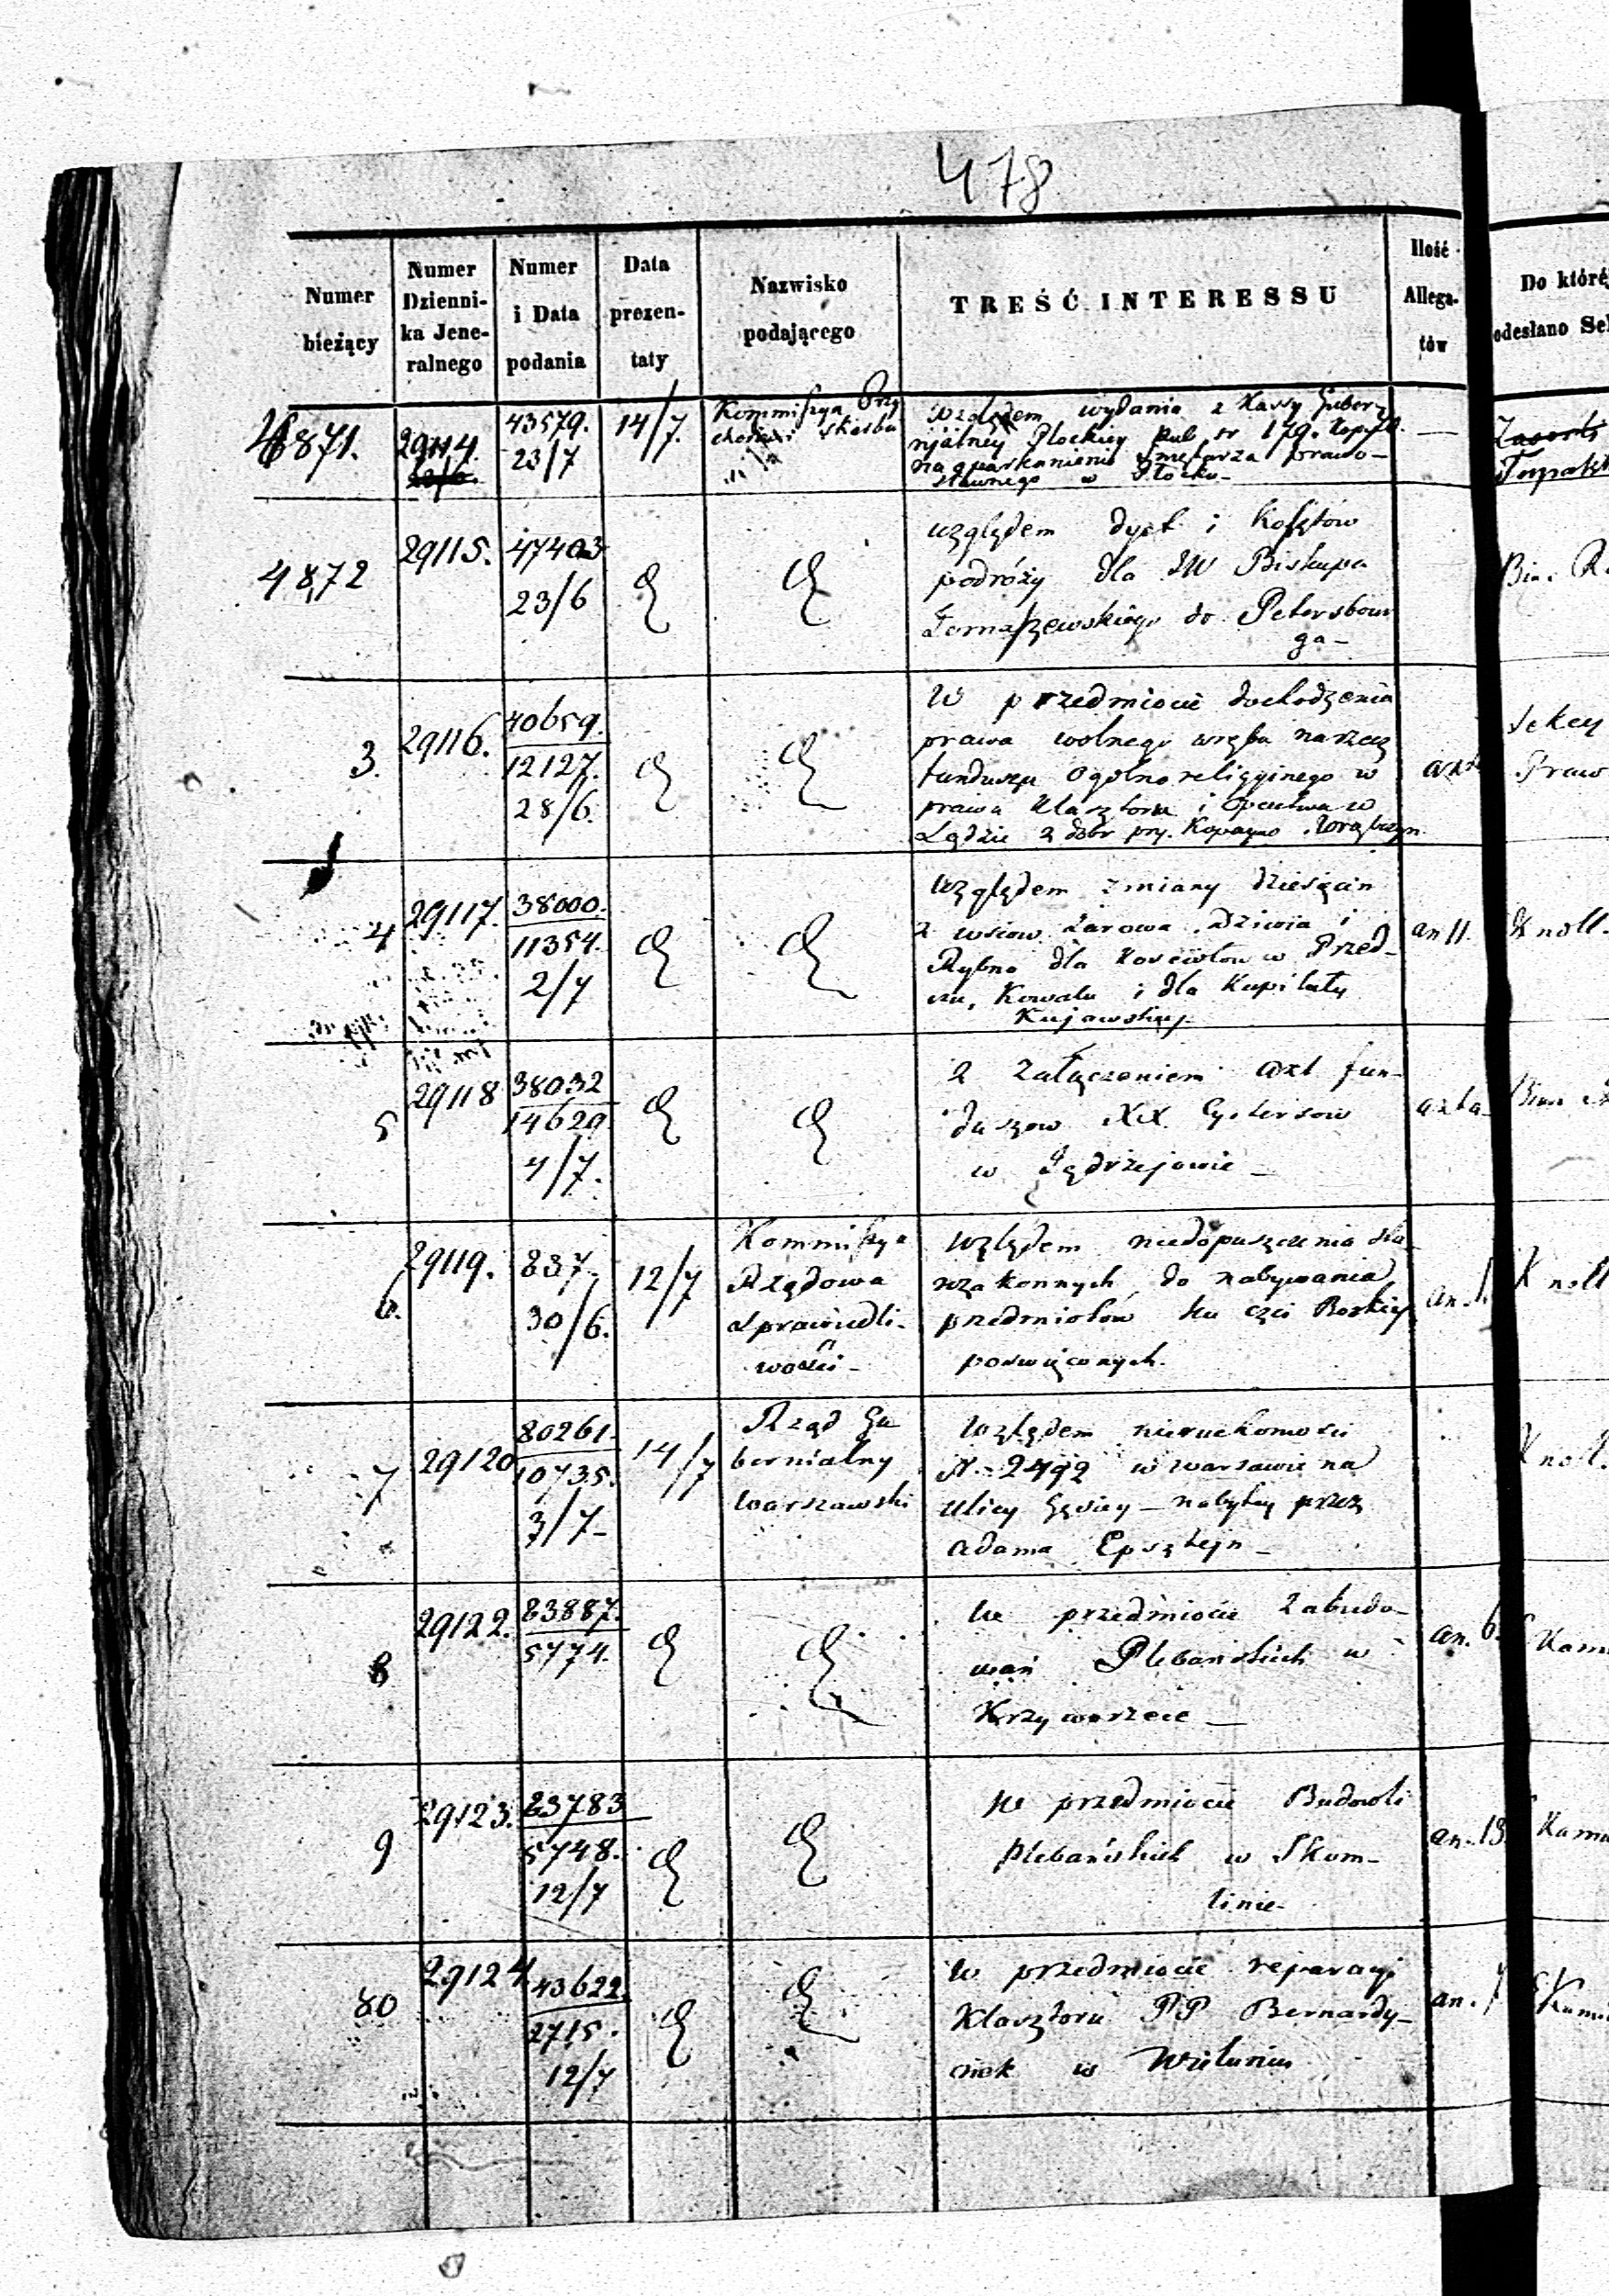 478
Numer bieżący
Numer Dzienni-ka Jene-ralnego
Numer i Data podania
Data prezen-taty
Nazwisko podającego
TREŚĆ INTERESSU
Ilość Allega-tów
Do któréj
odesłano Se
4871.
29114.
43579.
23/7
14/7.
Kommissya Przy
chodów i Skarbu
Względem wydania z Kassy Guber
njalney Płockiey Rub sr 179. Kop
na oparkanienie Smętarza prawo-
sławnego w Płocku-
4872
29115.
47403
23/6
względem dyet i kosztów
podróży dla JW Biskupa
Tomaszewskiego do Petersbour
ga-
3.
29116.
40659.
12127.
28/6.
W przedmiocie dochodzenia
prawa wolnego wrębu na rzecz
funduszu ogolno religijnego w
prawa Klasztoru i w
Lądzie z dobr
Sekcy
Praw
4
29117.
38000.
11354.
2/7
Względem zmiany dziesięcin
z wsiow Żarowa, Dziwia i
Rybno dla Kosciołów w Przed-
czu, Kowalu i dla Kapituły
Kujawskiej-
an 11.
Knoll.
5
29118
38032
14629
4/7.
z załączeniem akt fun-
duszow XX. Cystersow
w Jędrzejowie-
akta
6.
29119.
837.
30/6.
12/7
Kommissya
Rządowa
Sprawiedli-
wości-
Względem niedopuszczenia sta
rozakonnych do nabywania
przedmiotów ku czci Boskiey
poswięconych.
an. 1.
Knoll
7
29120
80261.
10735.
3/7-
14/7
Rząd Gu
bernialny
Warszawski
Względem nieruchomosci
N. 2492 w Warszawie na
Ulicy Gęsiey - nabytey przez
Adama Epsztejn-
Knoll.
8
29122.
83887.
5774.
an. 6.
We przedmiocie Zabudo-
wań Plebańskich w
Krzyworzece-
Kam
9
29123.
83783
5748.
12/7
We przedmiocie Budowli
Plebańskich w Skom-
linie-
an. 13.
Kam
80
29124
43622.
2715.
12/7
W przedmiocie reparacyi
Klasztoru PP Bernardy-
nek w Wieluniu
an. 7
Kam